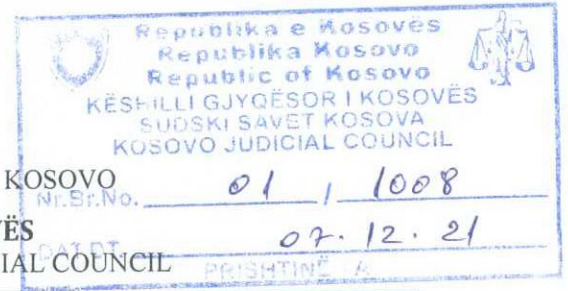 Republika e Kosovës
Republika Kosovo
Republic of Kosovo
KËSHILLI GJYQËSOR I KOSOVËS
SUDSKI SAVET KOSOVA
KOSOVO JUDICIAL COUNCIL
KOSOVO
Nr.Br.No. 01 / 1008
ËS
DAT.DT. 07.12.21
IAL COUNCIL
PRISHTINË